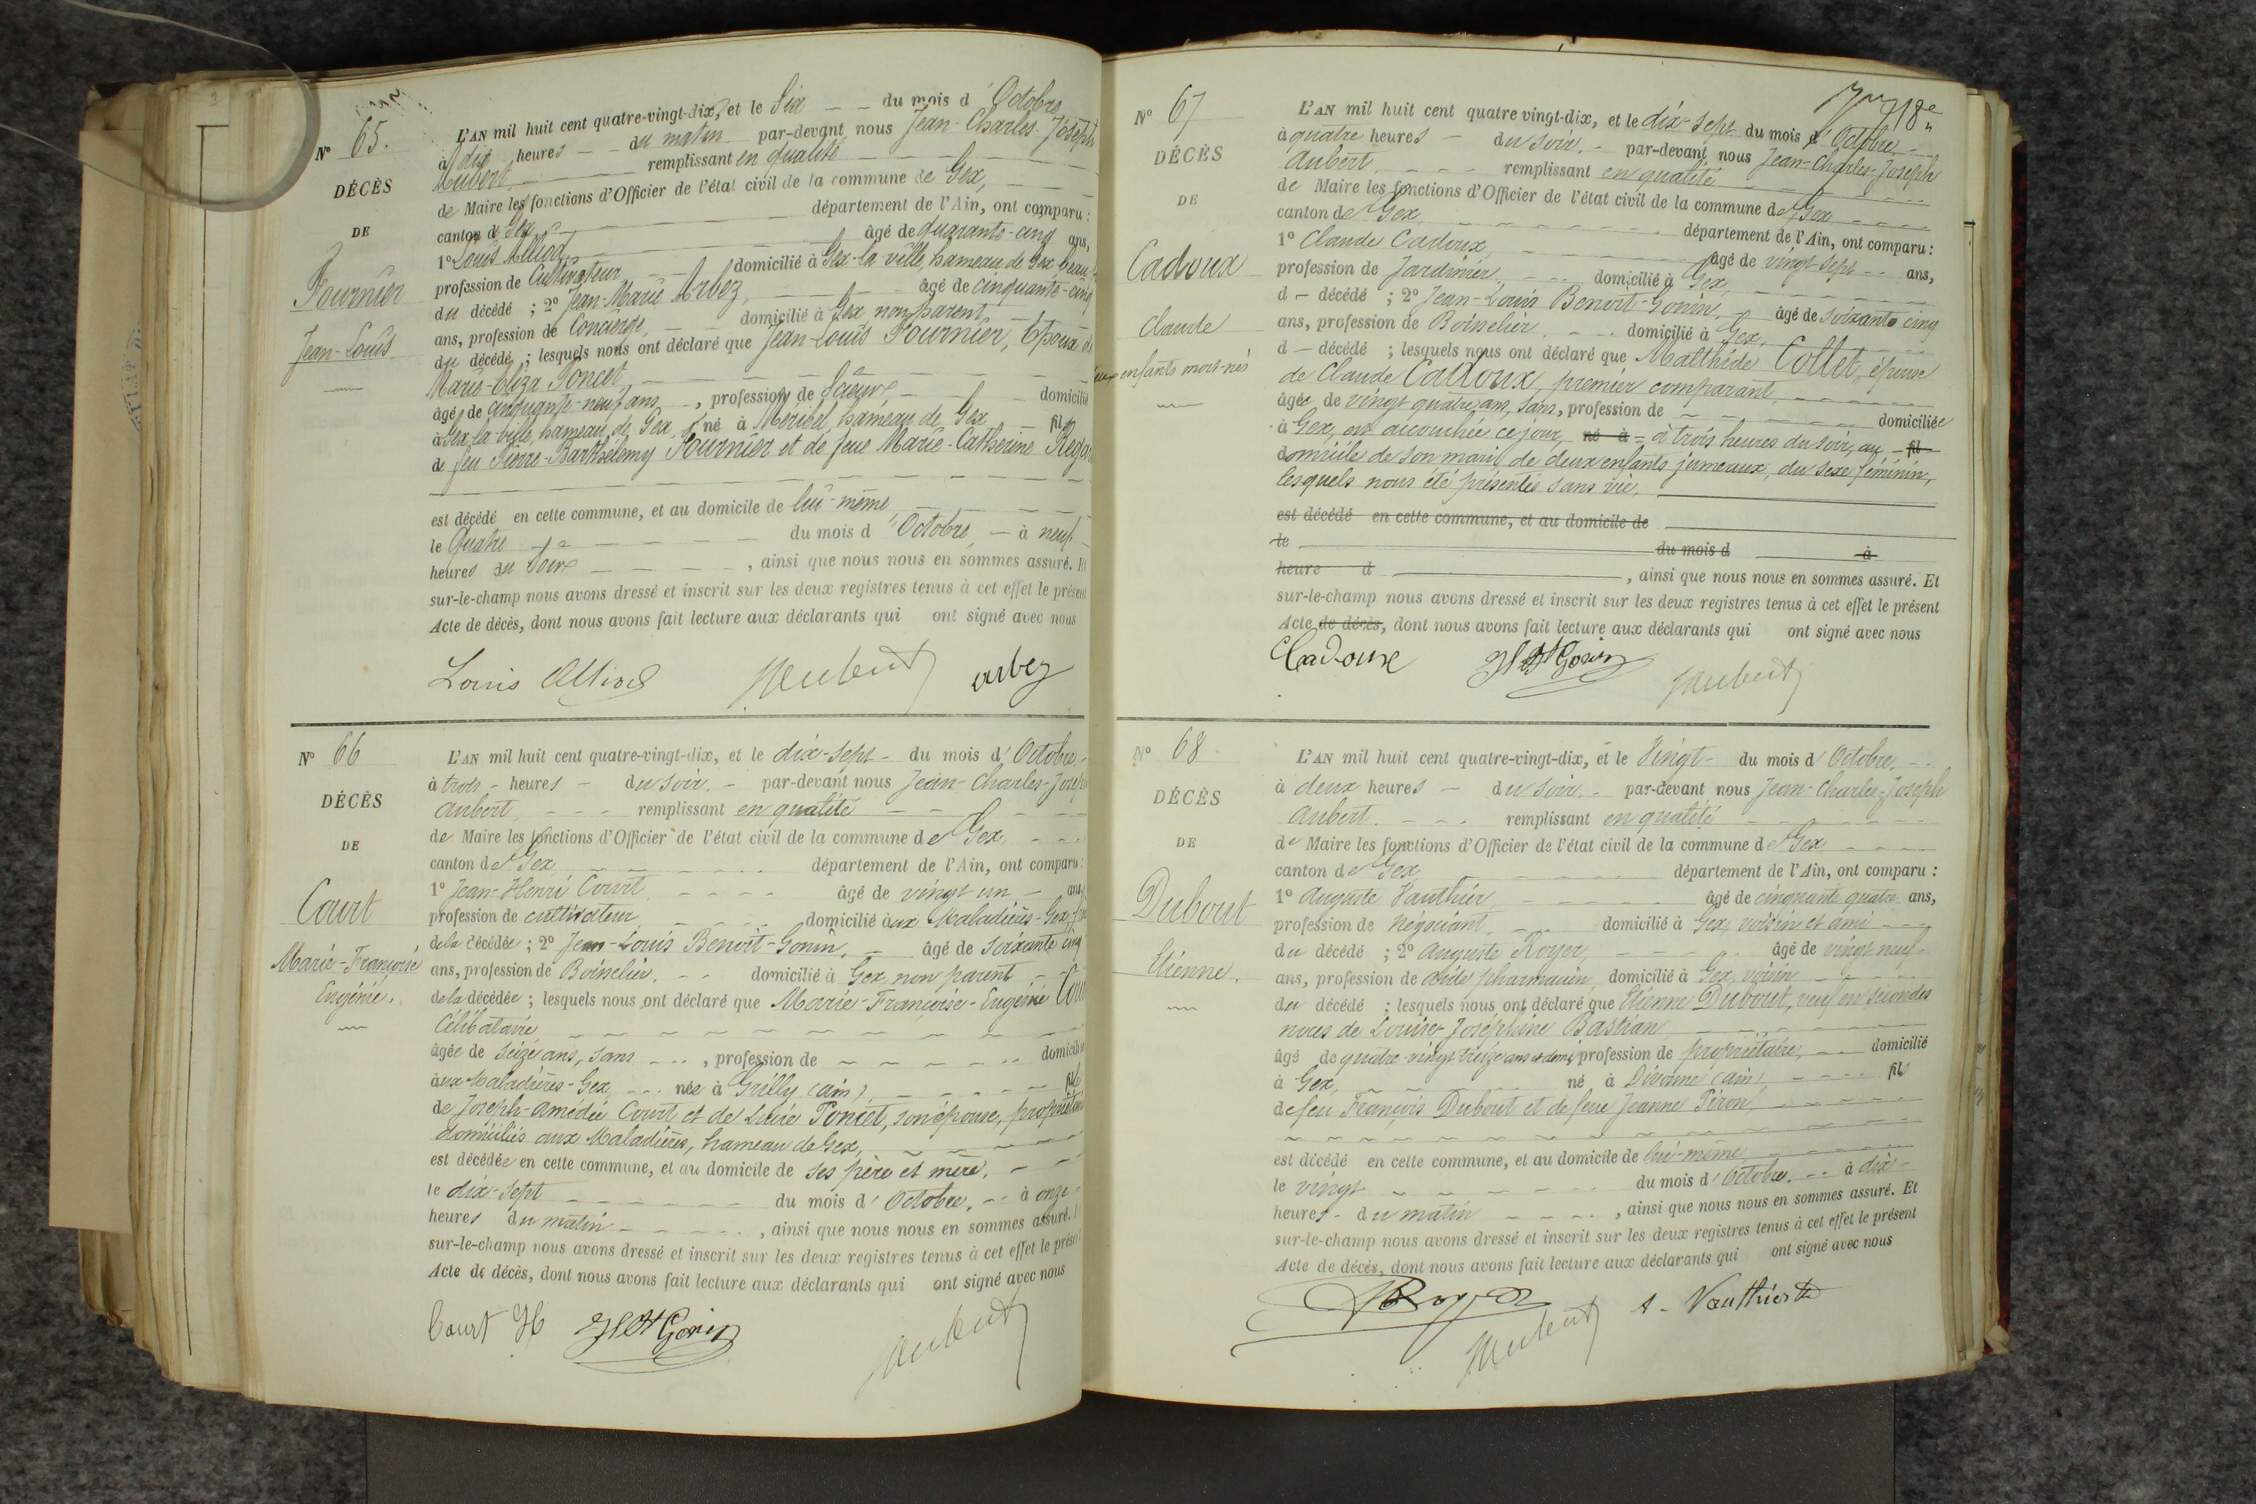 Nº 65.
DÉCÈS
DE
Fournier
Jean-Louis
L'AN mil huit cent quatre-vingt-dix, et le Six du mois d'Octobre
à dix heures du matin par-devant nous Jean-Charles-Joseph
Aubert remplissant en qualité
de Maire les fonctions d'Officier de l'état civil de la commune de Gex,
canton de Gex département de l'Ain, ont comparu :
1º Louis Alliod, âgé de quarante-cinq ans,
profession de Cultivateur domicilié à Gex-la-ville, hameau de Gex, beau
du décédé ; 2º Jean-Marie Arbez, âgé de cinquante-cinq
ans, profession de Concierge, domicilié à Gex non parent
du décédé ; lesquels nous ont déclaré que Jean-Louis Fournier, Epoux de
Marie-Eliza Poncet
âgé de cinquante-neuf ans, profession de Scieur domicilié
à Gex-la-ville, hameau de Gex, né à hameau de Gex fils
de feu Pierre-Barthélemy Fournier et de feue Marie-Catherine
est décédé en cette commune, et au domicile de lui-même
le Quatre du mois d'Octobre à neuf
heures du Soir, ainsi que nous nous en sommes assuré. Et
sur-le-champ nous avons dressé et inscrit sur les deux registres tenus à cet effet le présent
Acte de décès, dont nous avons fait lecture aux déclarants qui ont signé avec nous
Louis Alliod JAubert arbez
Nº 66
DÉCÈS
DE
Court
Marie-Françoise
Eugénie.
L'AN mil huit cent quatre-vingt-dix, et le dix-sept du mois d'Octobre,
à trois heures du soir. par-devant nous Jean-Charles-Joseph
Aubert, remplissant en qualité
de Maire les fonctions d'Officier de l'état civil de la commune de Gex,
canton de Gex département de l'Ain, ont comparu :
1º Jean-Henri Court âgé de vingt un ans,
profession de cultivateur domicilié aux Maladières-Gex,
de la décédée ; 2º Jean-Louis Benoît-Gonin, âgé de soixante cinq
ans, profession de Boisselier. domicilié à Gex, non parent
de la décédée ; lesquels nous ont déclaré que Marie-Françoise-Eugénie Court
Célibataire
âgée de seize ans, sans, profession de domiciliée
aux Maladières-Gex, née à Grilly (Ain), fille
de Joseph-Amédée Court et de Lucie Poncet, son épouse, propriétaires
domiciliés aux Maladières, hameau de Gex,
est décédée en cette commune, et au domicile de ses père et mère,
le dix-sept du mois d'Octobre, à onze
heures du matin, ainsi que nous nous en sommes assuré. Et
sur-le-champ nous avons dressé et inscrit sur les deux registres tenus à cet effet le présent
Acte de décès, dont nous avons fait lecture aux déclarants qui ont signé avec nous
Court H JLBt Gonin JAubert
18e
Nº 67
DÉCÈS
DE
Cadoux
Claude
deux enfants mort-nés
L'AN mil huit cent quatre vingt-dix, et le dix-sept du mois d'Octobre
à quatre heures du soir. par-devant nous Jean-Charles-Joseph
Aubert. remplissant en qualité
de Maire les fonctions d'Officier de l'état civil de la commune de Gex
canton de Gex, département de l'Ain, ont comparu :
1º Claude Cadoux, âgé de vingt-sept ans,
profession de Jardinier, domicilié à Gex,
d décédé ; 2º Jean-Louis Benoît-Gonin, âgé de soixante cinq
ans, profession de Boisselier. domicilié à Gex,
d décédé ; lesquels nous ont déclaré que Matthéde Collet, épouse
de Claude Cadoux, premier comparant,
âgée de vingt quatre ans, sans, profession de domiciliée
à Gex, est accouchée ce jour, né à à trois heures du soir, au fil
domicile de son mari, de deux enfants jumeaux, du sexe féminin,
lesquels nous été présentés sans vie.
est décédé en cette commune, et au domicile de
le du mois d à
heure d, ainsi que nous nous en sommes assuré. Et
sur-le-champ nous avons dressé et inscrit sur les deux registres tenus à cet effet le présent
Acte de décès, dont nous avons fait lecture aux déclarants qui ont signé avec nous
Cadoux JLBt Gonin JAubert
Nº 68
DÉCÈS
DE
Dubout
Etienne.
L'AN mil huit cent quatre-vingt-dix, et le Vingt du mois d'Octobre.
à deux heures du soir. par-devant nous Jean-Charles-Joseph
Aubert. remplissant en qualité
de Maire les fonctions d'Officier de l'état civil de la commune de Gex
canton de Gex département de l'Ain, ont comparu :
1º Auguste Vauthier âgé de cinquante quatre ans,
profession de Négociant domicilié à Gex, voisin et ami
du décédé ; 2º Auguste Royer, âgé de vingt neuf
ans, profession de aide pharmacien domicilié à Gex, voisin
du décédé ; lesquels nous ont déclaré que Etienne Dubout, veuf en secondes
noces de Louise-Joséphine Bastian
âgé de quatre-vingt treize ans et demi, profession de propriétaire, domicilié
à Gex, né à Divonne (Ain), fils
de feu François Dubout et de feue Jeanne Piron,
est décédé en cette commune, et au domicile de lui-même
le vingt du mois d'Octobre. à dix
heures du matin, ainsi que nous nous en sommes assuré. Et
sur-le-champ nous avons dressé et inscrit sur les deux registres tenus à cet effet le présent
Acte de décès, dont nous avons fait lecture aux déclarants qui ont signé avec nous
Royer JAubert A. Vauthier